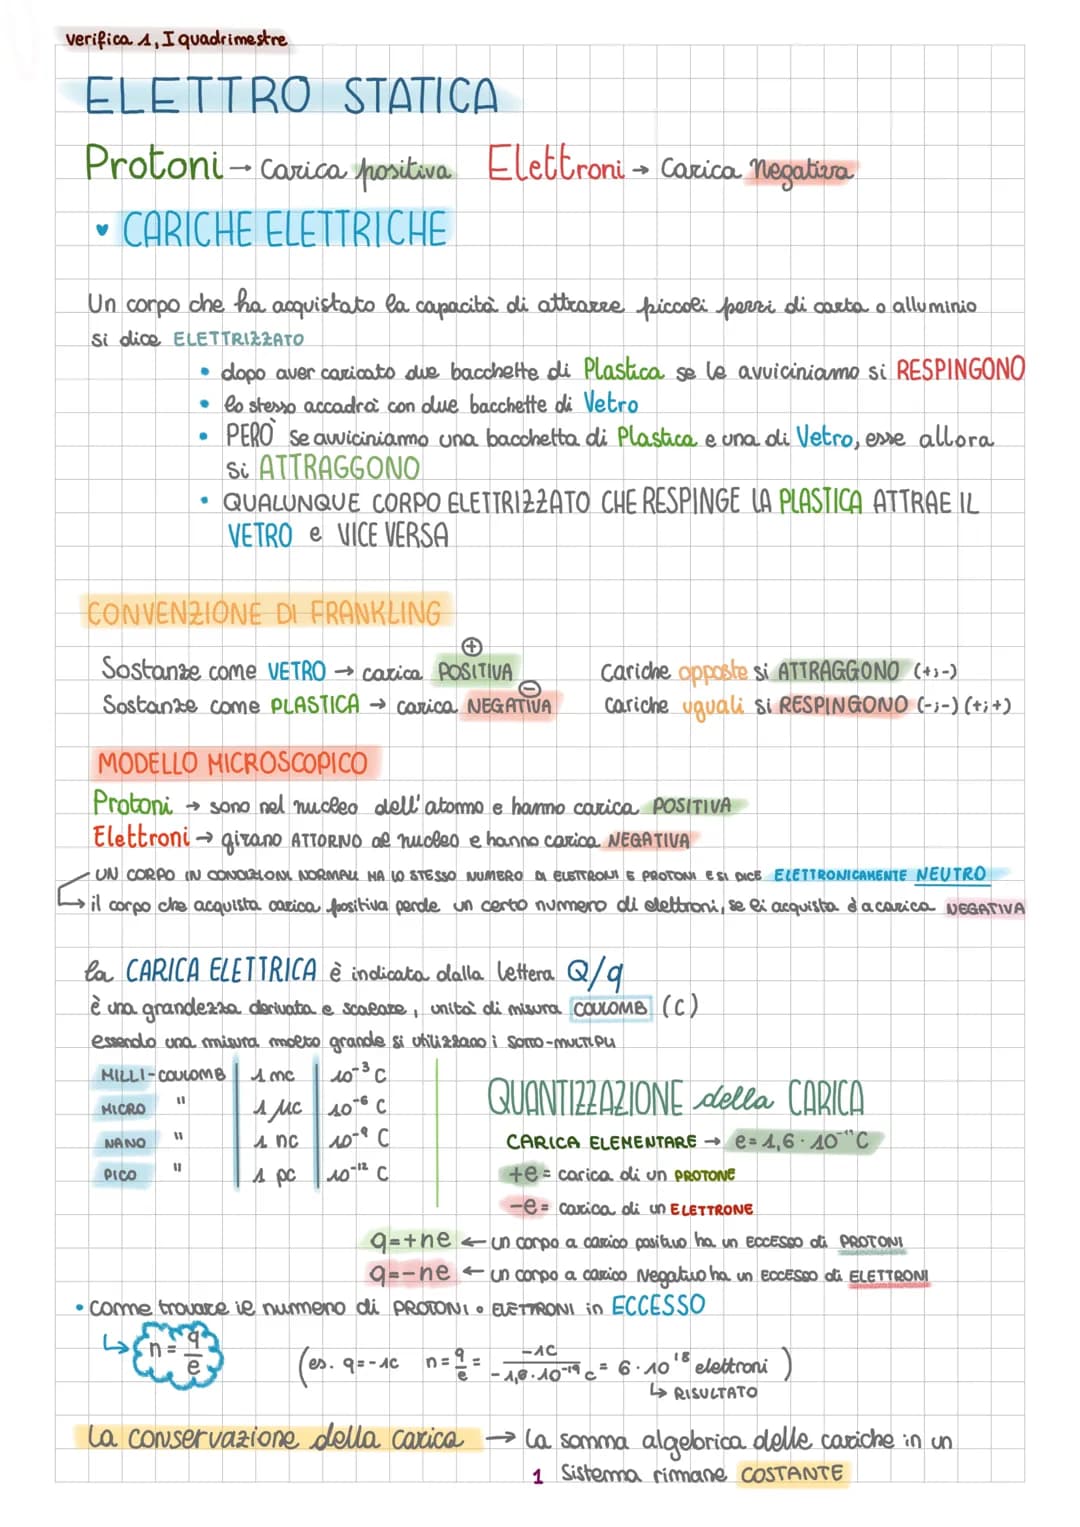 Verifica 1, I quadrimestre
ELETTRO STATICA
Protoni → Carica positiva Elettroni → Carica Negativa
♥ CARICHE ELETTRICHE
Un corpo che ha acquistato la capacità di attrarre piccoli pezzi di carta o alluminio
si dice ELETTRIZZATO
• dopo aver caricato due bacchette di Plastica se le avviciniamo si RESPINGONO
• lo stesso accadrà con due bacchette di Vetro
• PERÒ se avviciniamo una bacchetta di Plastica e una di Vetro, esse allora
si ATTRAGGONO
• QUALUNQUE CORPO ELETTRIZZATO CHE RESPINGE LA PLASTICA ATTRAE IL
VETRO e VICE VERSA
CONVENZIONE DI FRANKLING
Sostanze come VETRO → carica POSITIVA ⊕
Sostanze come PLASTICA → carica NEGATIVA ⊖
Cariche opposte si ATTRAGGONO (+;-)
Cariche uguali si RESPINGONO (-;-) (+;+)
MODELLO MICROSCOPICO
Protoni → sono nel nucleo dell'atomo e hanno carica POSITIVA
Elettroni → girano ATTORNO al nucleo e hanno carica NEGATIVA
UN CORPO IN CONDIZIONI NORMALI HA LO STESSO NUMERO DI ELETTRONI E PROTONI E SI DICE ELETTRONICAMENTE NEUTRO
il corpo che acquista carica positiva perde un certo numero di elettroni, se li acquista è a carica NEGATIVA
la CARICA ELETTRICA è indicata dalla lettera Q/q
è una grandezza derivata e scalare, unità di misura COULOMB (C)
essendo una misura molto grande si utilizzano i SOTTO-MULTIPLI
MILLI-COULOMB 1 mc 10⁻³ C
MICRO " 1 μc 10⁻⁶ C
NANO " 1 nc 10⁻⁹ C
PICO " 1 pc 10⁻¹² C
QUANTIZZAZIONE della CARICA
CARICA ELEMENTARE → e = 1,6 · 10⁻¹¹ C
+e = carica di un PROTONE
-e = carica di un ELETTRONE
q=+ne ← un corpo a carico positivo ha un ECCESSO di PROTONI
q=-ne ← un corpo a carico Negativo ha un ECCESSO di ELETTRONI
• come trovare il numero di PROTONI o ELETTRONI in ECCESSO
n = q/e
(es. q=-1c n = q/e = -1C / -1,6·10⁻¹⁹ c = 6·10¹⁸ elettroni)
↳ RISULTATO
La conservazione della carica → la somma algebrica delle cariche in un
sistema rimane COSTANTE
1